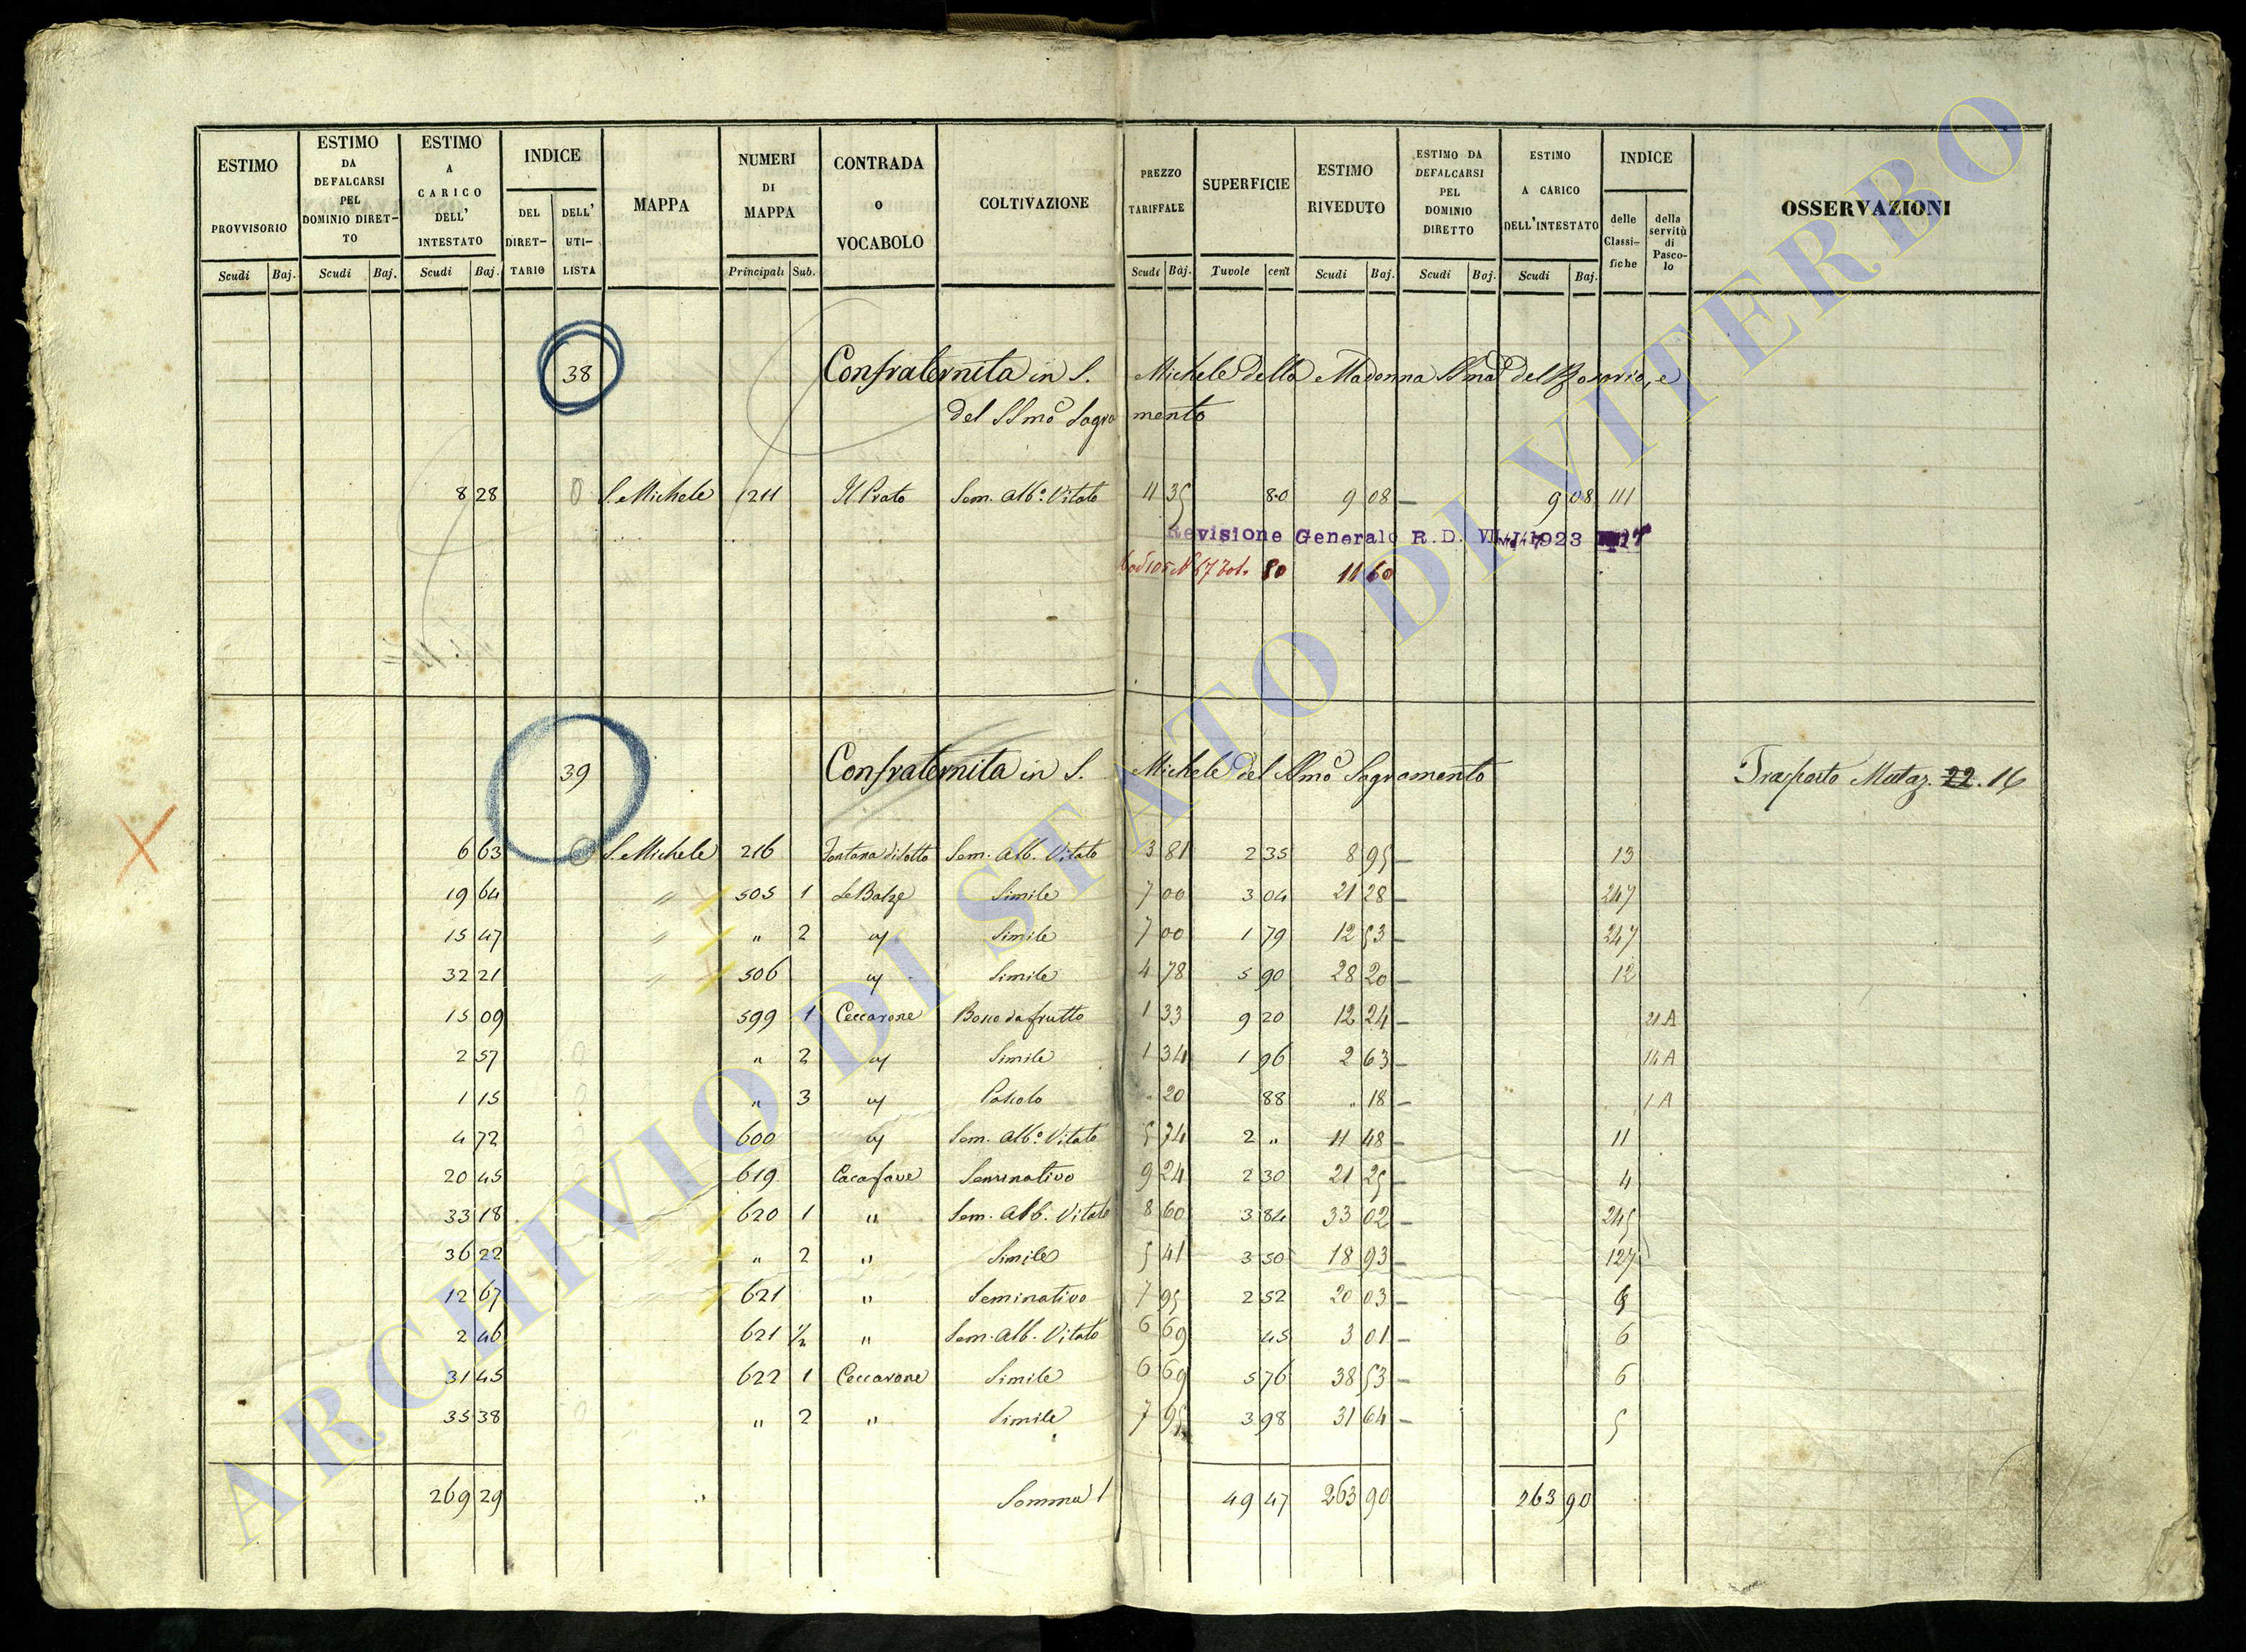 ESTIMO PROVVISORIO Scudi Baj.
ESTIMO DA DEFALCARSI PEL DOMINIO DIRET- TO Scudi Baj.
ESTIMO A CARICO DELL' INTESTATO Scudi Baj.
INDICE DEL DIRET- TARIO DELL' UTI- LISTA
MAPPA
NUMERI DI MAPPA Principali Sub.
CONTRADA o VOCABOLO
COLTIVAZIONE
PREZZO TARIFFALE Scudi Baj.
SUPERFICIE Tavole cent
ESTIMO RIVEDUTO Scudi Baj.
ESTIMO DA DEFALCARSI PEL DOMINIO DIRETTO Scudi Baj.
ESTIMO A CARICO DELL'INTESTATO Scudi Baj.
INDICE delle Classi- fiche della servitù di Pasco- lo
OSSERVAZIONI
38 Confraternita in S. Michele della Madonna SSma del Rosario, e
del SSmo Sagramento
8 28 0 S. Michele 1211 Il Prato Sem. Albo. Vitato 11 35 80 9 08 — 9 08 111
Revisione Generale R.D. 1923
80 11 60
39 Confraternita in S. Michele del SSmo Sagramento Trasporto Mutaz. 22. 16
6 63 0 S. Michele 216 Fontana di Sotto Sem. Alb. Vitato 3 81 2 35 8 95 — 13
19 64 " 505 1 Le Balze Simile 7 00 3 04 21 28 — 247
15 47 " " 2 " Simile 7 00 1 79 12 53 — 247
32 21 " 506 " Simile 4 78 5 90 28 20 — 12
15 09 599 1 Ceccarone Bosco da frutto 1 33 9 20 12 24 — 21 A
2 57 0 " 2 " Simile 1 34 1 96 2 63 — 14 A
1 15 0 " 3 " Pascolo " 20 88 " 18 — 1 A
4 72 600 " Sem. Albo. Vitato 5 74 2 " 11 48 — 11
20 45 619 Cacafave Seminativo 9 24 2 30 21 25 — 4
33 18 620 1 " Sem. Alb. Vitato 8 60 3 84 33 02 — 245
36 22 " 2 " Simile 5 41 3 50 18 93 — 127
12 67 621 " Seminativo 7 95 2 52 20 03 —
2 46 621 1/2 " Sem. Alb. Vitato 6 69 45 3 01 — 6
31 45 622 1 Ceccarone Simile 6 69 5 76 38 53 — 6
35 38 0 " 2 " Simile 7 95 3 98 31 64 — 5
269 29 Somma 49 47 263 90 263 90
ARCHIVIO DI STATO DI VITERBO